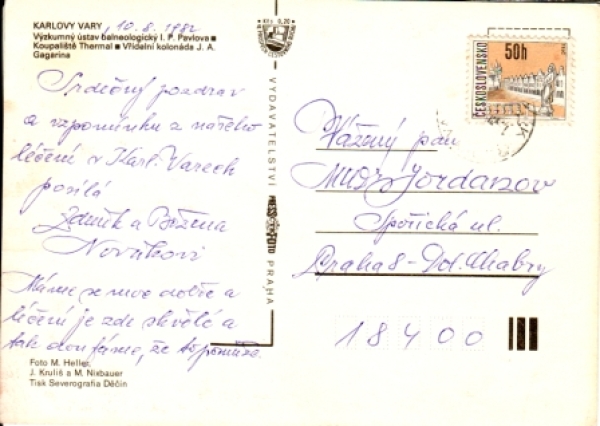 KARLOVY VARY, 10.8.1982
Výzkumný ústav balneologický I. P. Pavlova ■
Koupaliště Thermal ■ Vřídelní kolonáda J. A.
Gagarina
Srdečný pozdrav
a vzpomínku z našeho
léčení v Karl. Varech
posílá
Zdeněk a Božena
Novákovi
Máme se moc dobře a
léčení je zde skvělé a
tak doufáme, že to pomůže.
Foto M. Heller,
J. Kruliš a M. Nixbauer
Tisk Severografia Děčín
Kčs 0,20
VYDAVATELSTVÍ PRESSFOTO PRAHA
ČESKOSLOVENSKO
50h
Vážený pan
MUDr Jordanov
Spořická ul.
Praha 8 - Dol. Chabry
18400